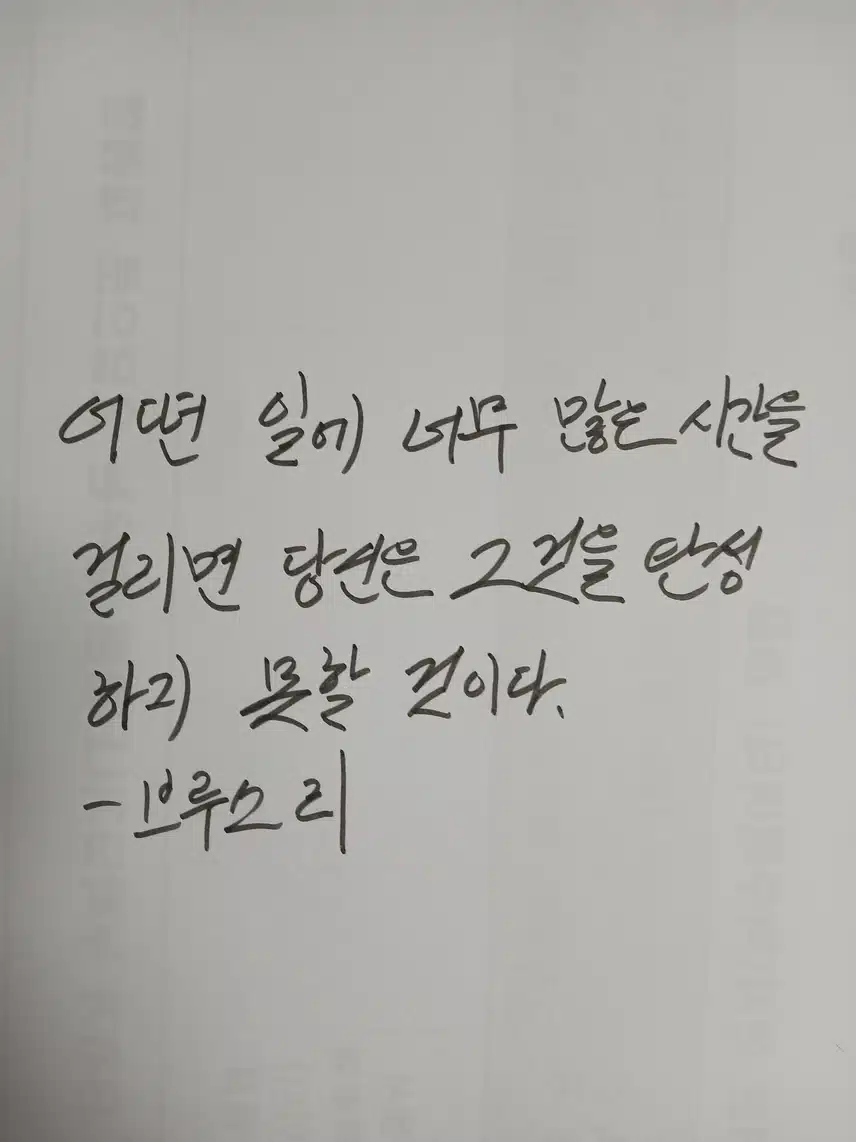 어떤 일에 너무 많은 시간을
걸리면 당신은 그것을 달성
하지 못할 것이다.
- 브루스 리